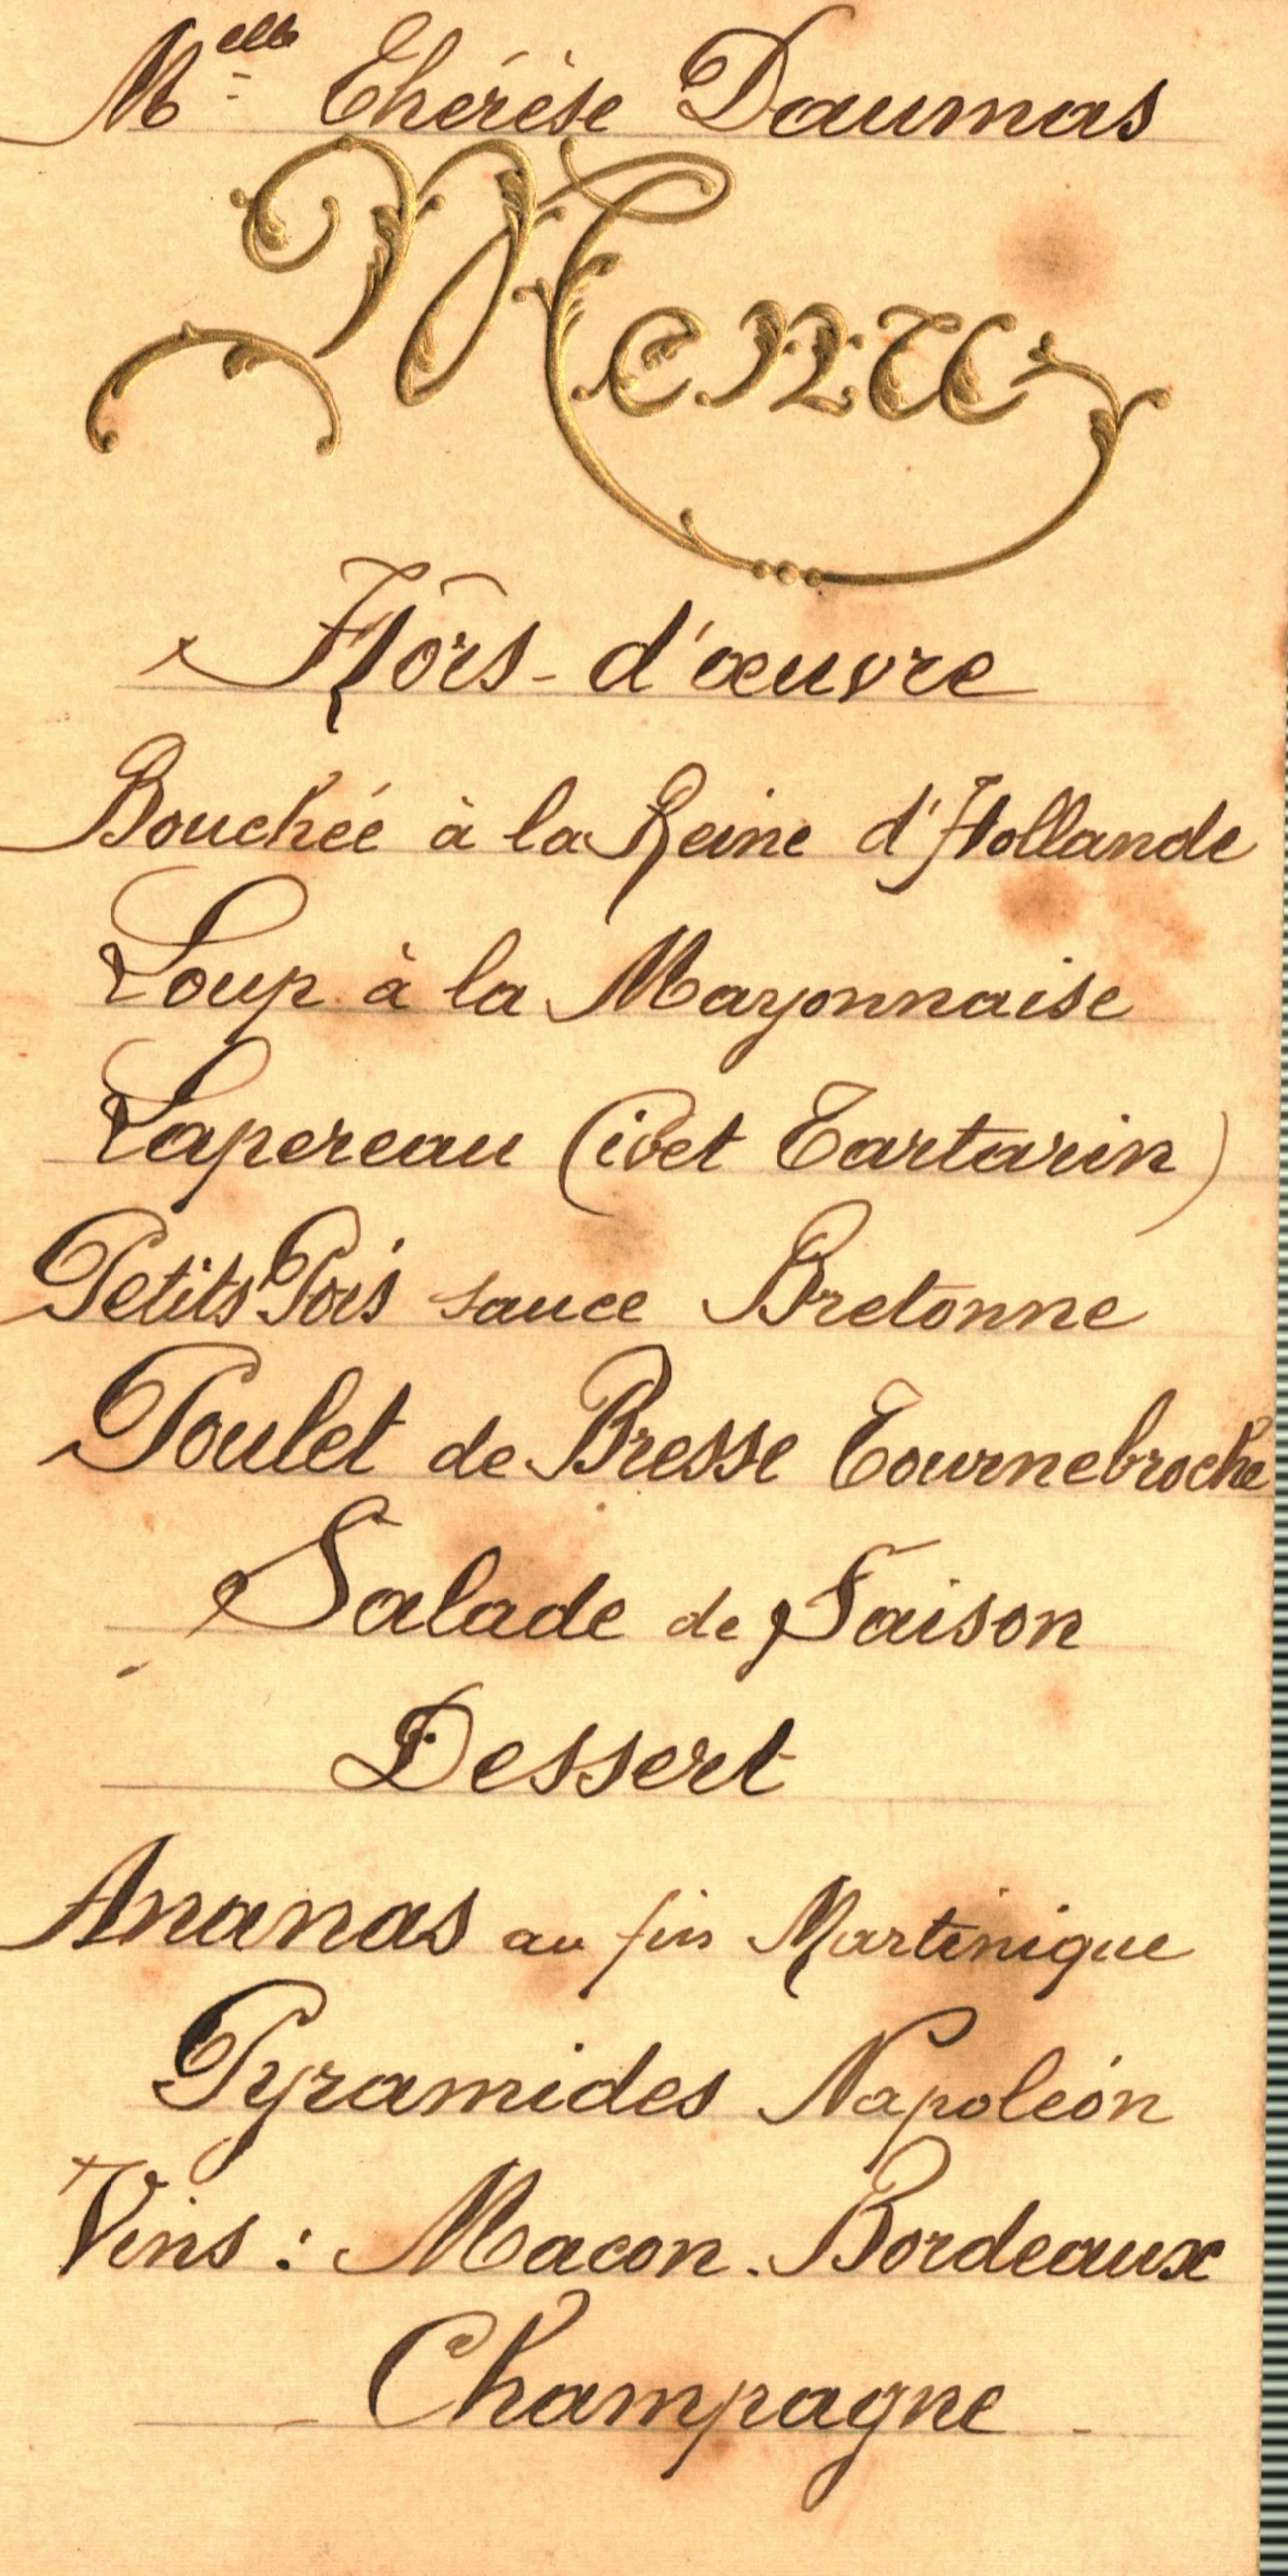 Melle Thérèse Daumas
Menu
Hors-d'œuvre
Bouchée à la Reine d'Hollande
Loup à la Mayonnaise
Lapereau (ibet Tartarin)
Petits Pois sauce Bretonne
Poulet de Bresse Tournebroche
Salade de Saison
Dessert
Ananas au fin Martinique
Pyramides Napoléon
Vins : Macon. Bordeaux
Champagne